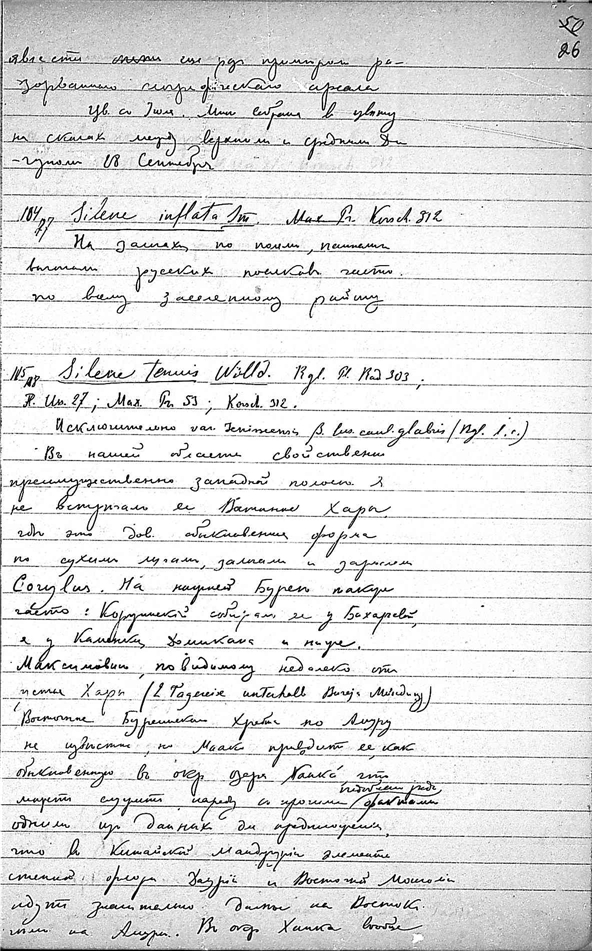 26
еще ряд примеров ра-
зорванного географического ареала
Цв. с Июля. Мною собрана в цвету
на скалах между верхним и средним
18 Сентября
104 Silene inflata Sm. Max. Pr. Korsch. 312
На залежах, по полям, пашням
русских поселков часто.
по всему заселенному району
105 Silene tenuis Willd. Rgl. Pl. Rad 303;
Fl. Us. 27; Max. Pr. 53; Korsch. 312.
Исключительно var. Jeniseensis β. lus. caul. glabris (Rgl. l. c.)
Въ нашей области свойственна
преимущественно западной полосе. Я
не встречал ее Восточнее Хары
где это дов. обыкновенная форма
по сухим лугам, залежам и зарослям
Corylus. На нашей Бурее также
часто: Коржинский собирал ее у Бахаревой,
я у Каменки, Домикана и выше.
Максимович, по Видимому недалеко от
устья Хары (2 Tagereise unterhalb Bureja Mündung)
Восточнее Буреинского Хребта по Амуру
не известна, но Маак приводит ее, как
обыкновенную въ окр озера Ханка, что
может служить наряду с прочими фактами
одним из данных для предположения,
что в Китайской Манджурии элементы
степной флоры Даурии и Восточной Монголии
идут значительно дальше на Восток
чем на Амуре. Въ окр Ханка вообще